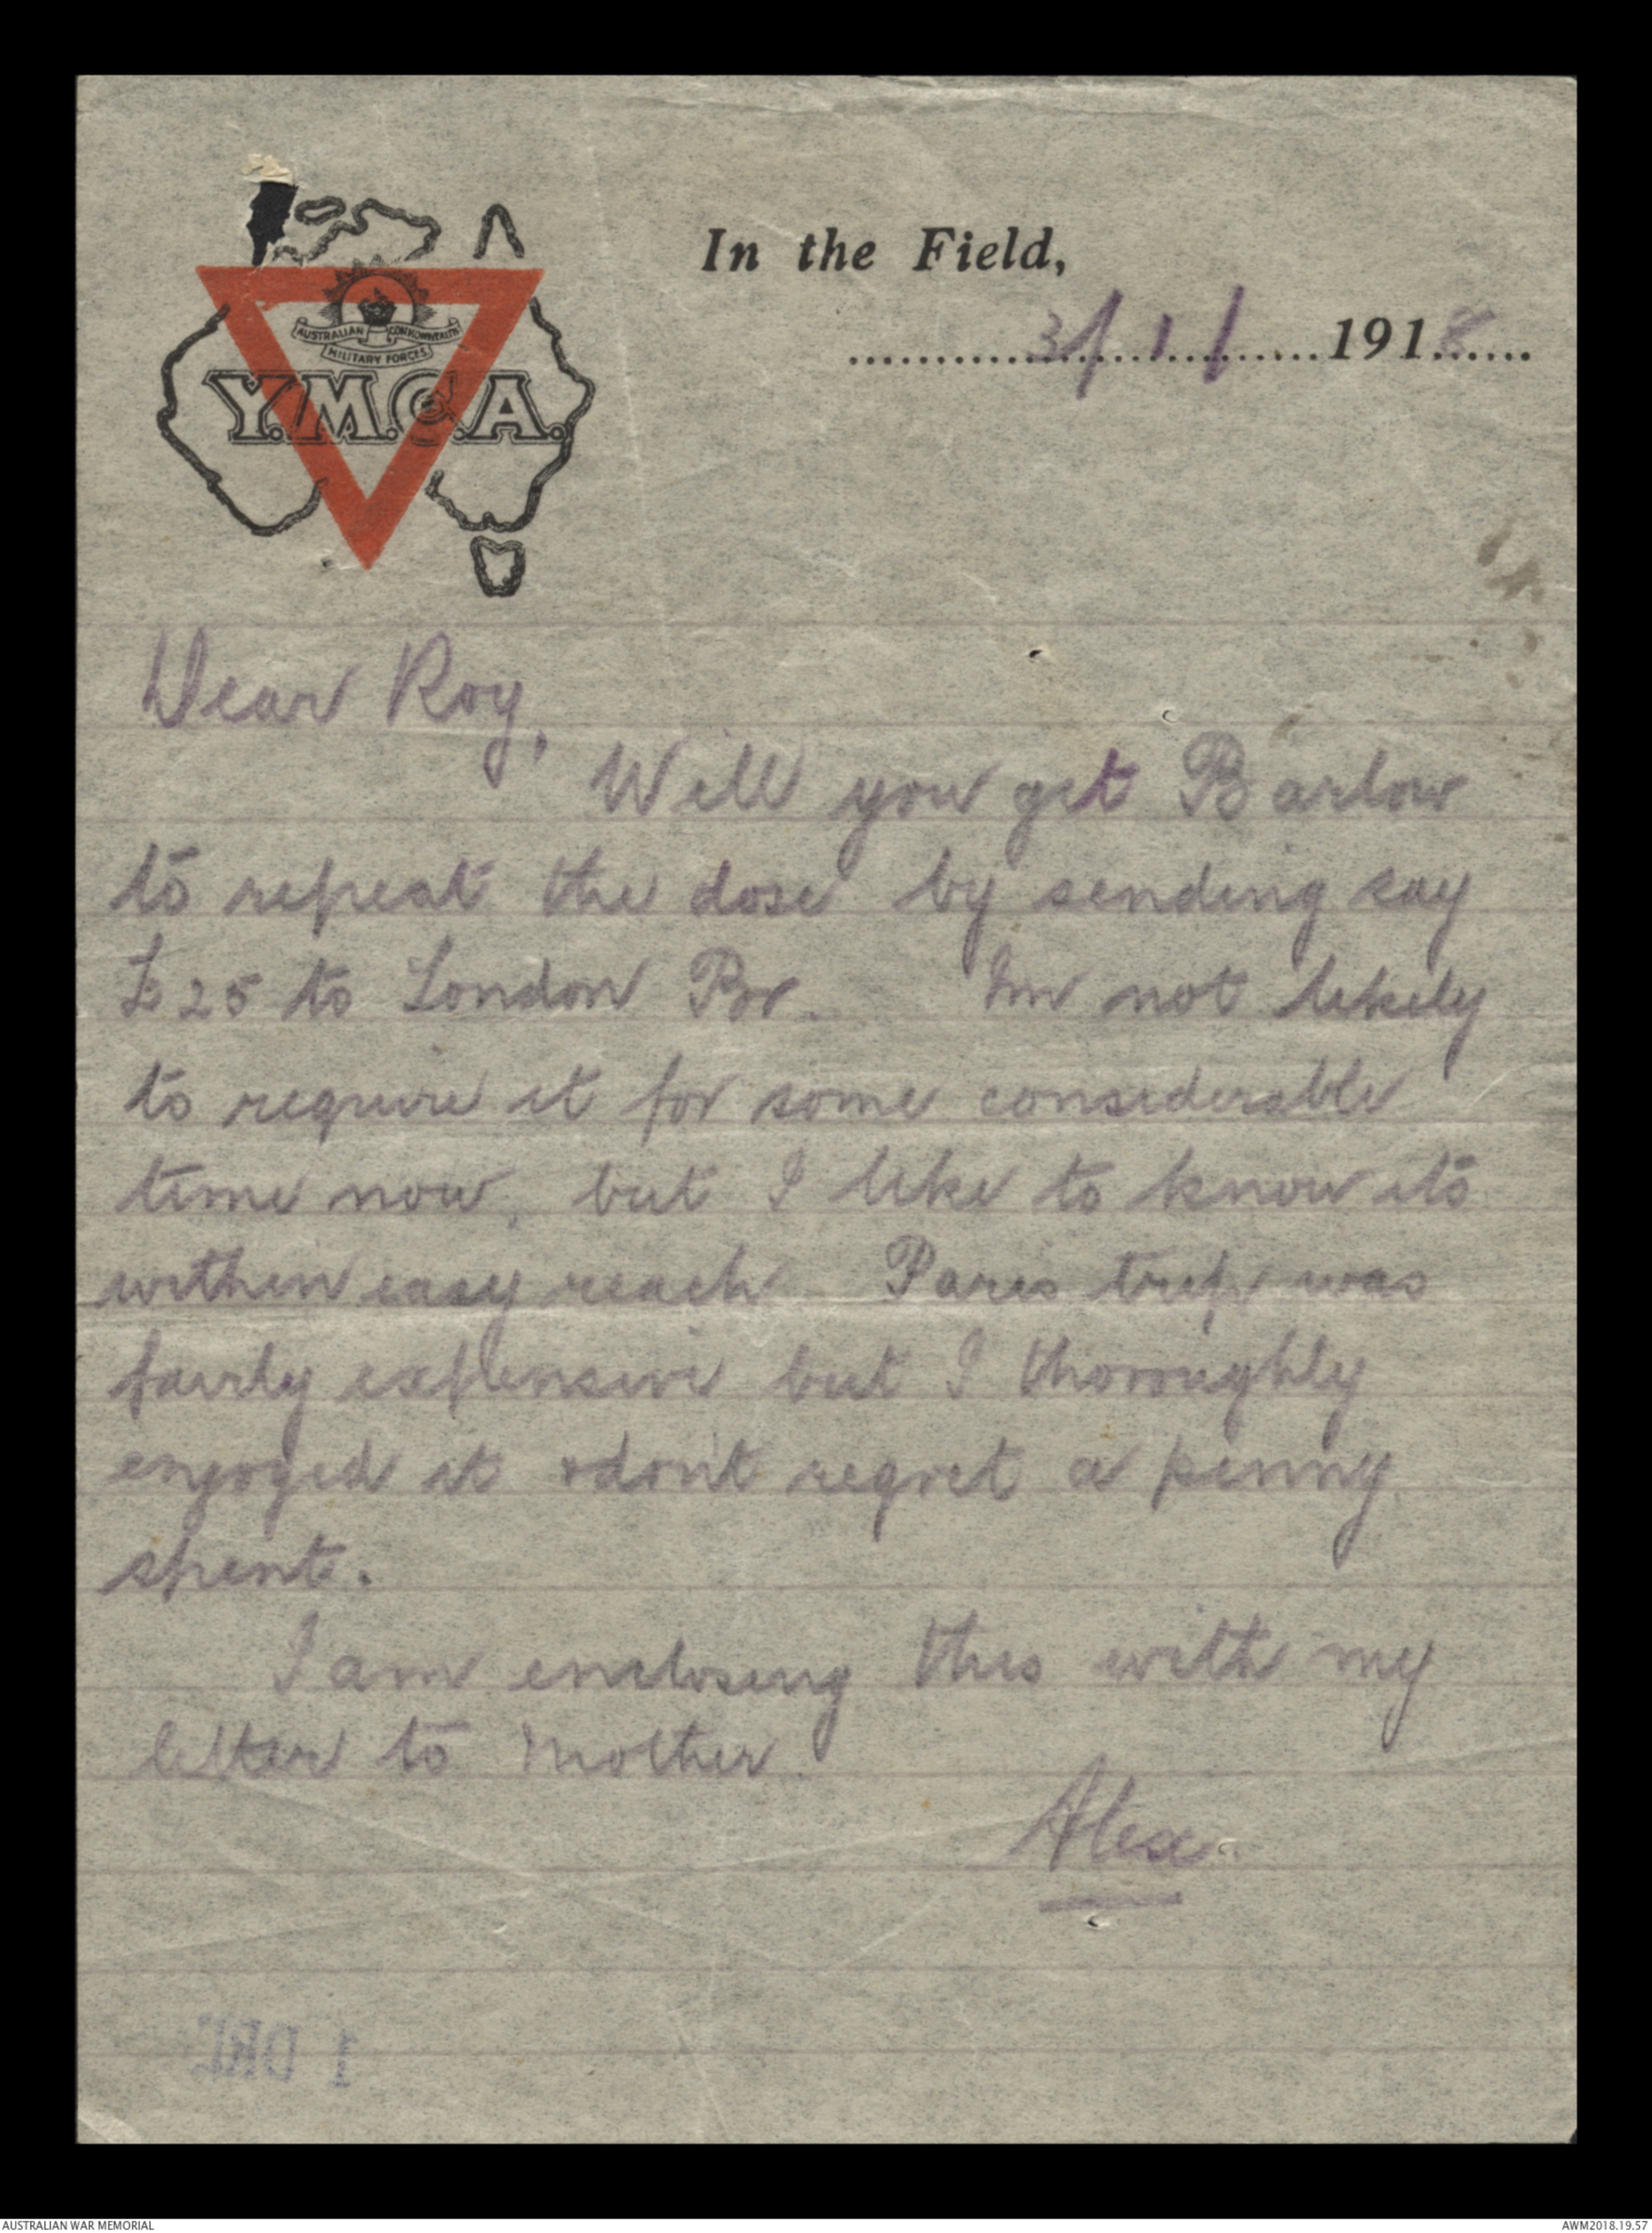 AUSTRALIAN COMMONWEALTH
MILITARY FORCES
Y.M.C.A.
In the Field,
3/1/1918
Dear Roy,
Will you get Barlow
to repeat the dose by sending say
£25 to London Br. Im not likely
to require it for some considerable
time now, but I like to know its
within easy reach Paris trip was
fairly expensive but I thoroughly
enjoyed it & dont regret a penny
spent.
I am enclosing this with my
letter to Mother.
Alex.
1 DEC
AUSTRALIAN WAR MEMORIAL
AWM2018.19.57